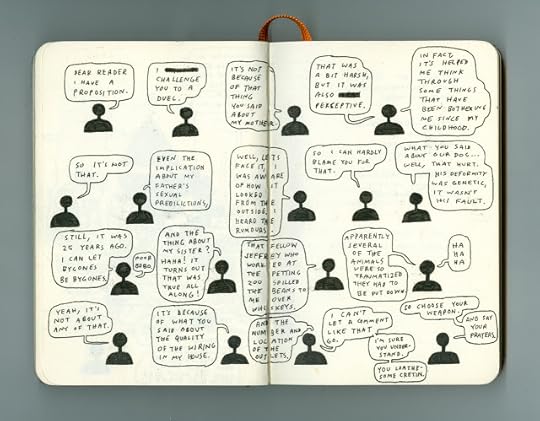 DEAR READER
I HAVE A
PROPOSITION.
I
CHALLENGE
YOU TO A
DUEL.
IT'S NOT
BECAUSE
OF THAT
THING
YOU SAID
ABOUT
MY MOTHER.
THAT WAS
A BIT HARSH,
BUT IT WAS
ALSO
PERSEPTIVE.
IN FACT,
IT'S HELPED
ME THINK
THROUGH
SOME THINGS
THAT HAVE
BEEN BOTHERING
ME SINCE MY
CHILDHOOD.
SO IT'S NOT
THAT.
EVEN THE
IMPLICATION
ABOUT MY
FATHER'S
SEXUAL
PREDILICTIONS,
WELL, LET'S
FACE IT, I
WAS AWARE
OF HOW IT
LOOKED
FROM THE
OUTSIDE, I
HEARD THE
RUMOURS.
SO I CAN HARDLY
BLAME YOU FOR
THAT.
WHAT YOU SAID
ABOUT OUR DOG...
WELL, THAT HURT.
HIS DEFORMITY
WAS GENETIC,
IT WASN'T
HIS FAULT.
STILL, IT WAS
25 YEARS AGO.
I CAN LET
BYGONES
BE BYGONES.
POOR
BOBO.
AND THE
THING ABOUT
MY SISTER?
HAHA! IT
TURNS OUT
THAT WAS
TRUE ALL
ALONG!
THAT FELLOW
JEFFREY WHO
WORKED AT
THE PETTING
ZOO SPILLED
THE BEANS TO
ME OVER
WHISKEYS.
APPARENTLY
SEVERAL
OF THE
ANIMALS
WERE SO
TRAUMATIZED
THEY HAD TO
BE PUT DOWN
HA
HA
HA
YEAH, IT'S
NOT ABOUT
ANY OF THAT.
IT'S BECAUSE
OF WHAT YOU
SAID ABOUT
THE QUALITY
OF THE WIRING
IN MY HOUSE.
AND THE
NUMBER AND
LOCATION
OF THE
OUTLETS.
I CAN'T
LET A COMMENT
LIKE THAT
GO.
I'M SURE
YOU UNDER-
STAND.
YOU LOATHE-
SOME CRETIN.
SO CHOOSE YOUR
WEAPON.
AND SAY
YOUR
PRAYERS.